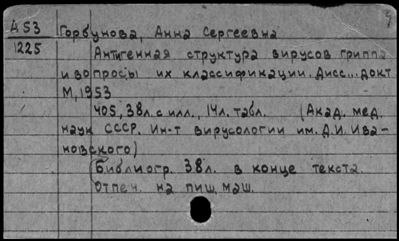 А53 Горбунова, Анна Сергеевна
1225 Антигенная структура вирусов гриппа
и вопросы их классификации. Дисс... докт
М, 1953
405, 38л. с илл., 14л. табл. (Акад. мед.
наук СССР. Ин-т вирусологии им. Д.И. Ива-
новского)
Библиогр. 38л. в конце текста.
Отпеч. на пиш. маш.